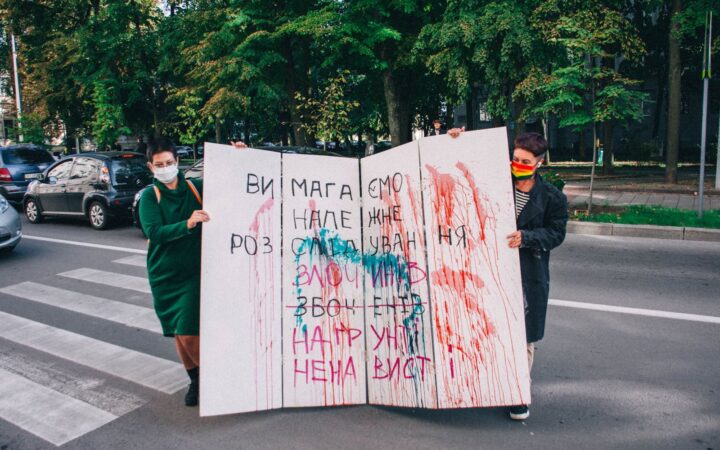 ВИМАГАЄМО
НАЛЕЖНЕ
РОЗСЛІДУВАННЯ
ЗЛОЧИНІВ
ЗБОЧЕНЦІВ
НА ГРУНТІ
НЕНАВИСТІ